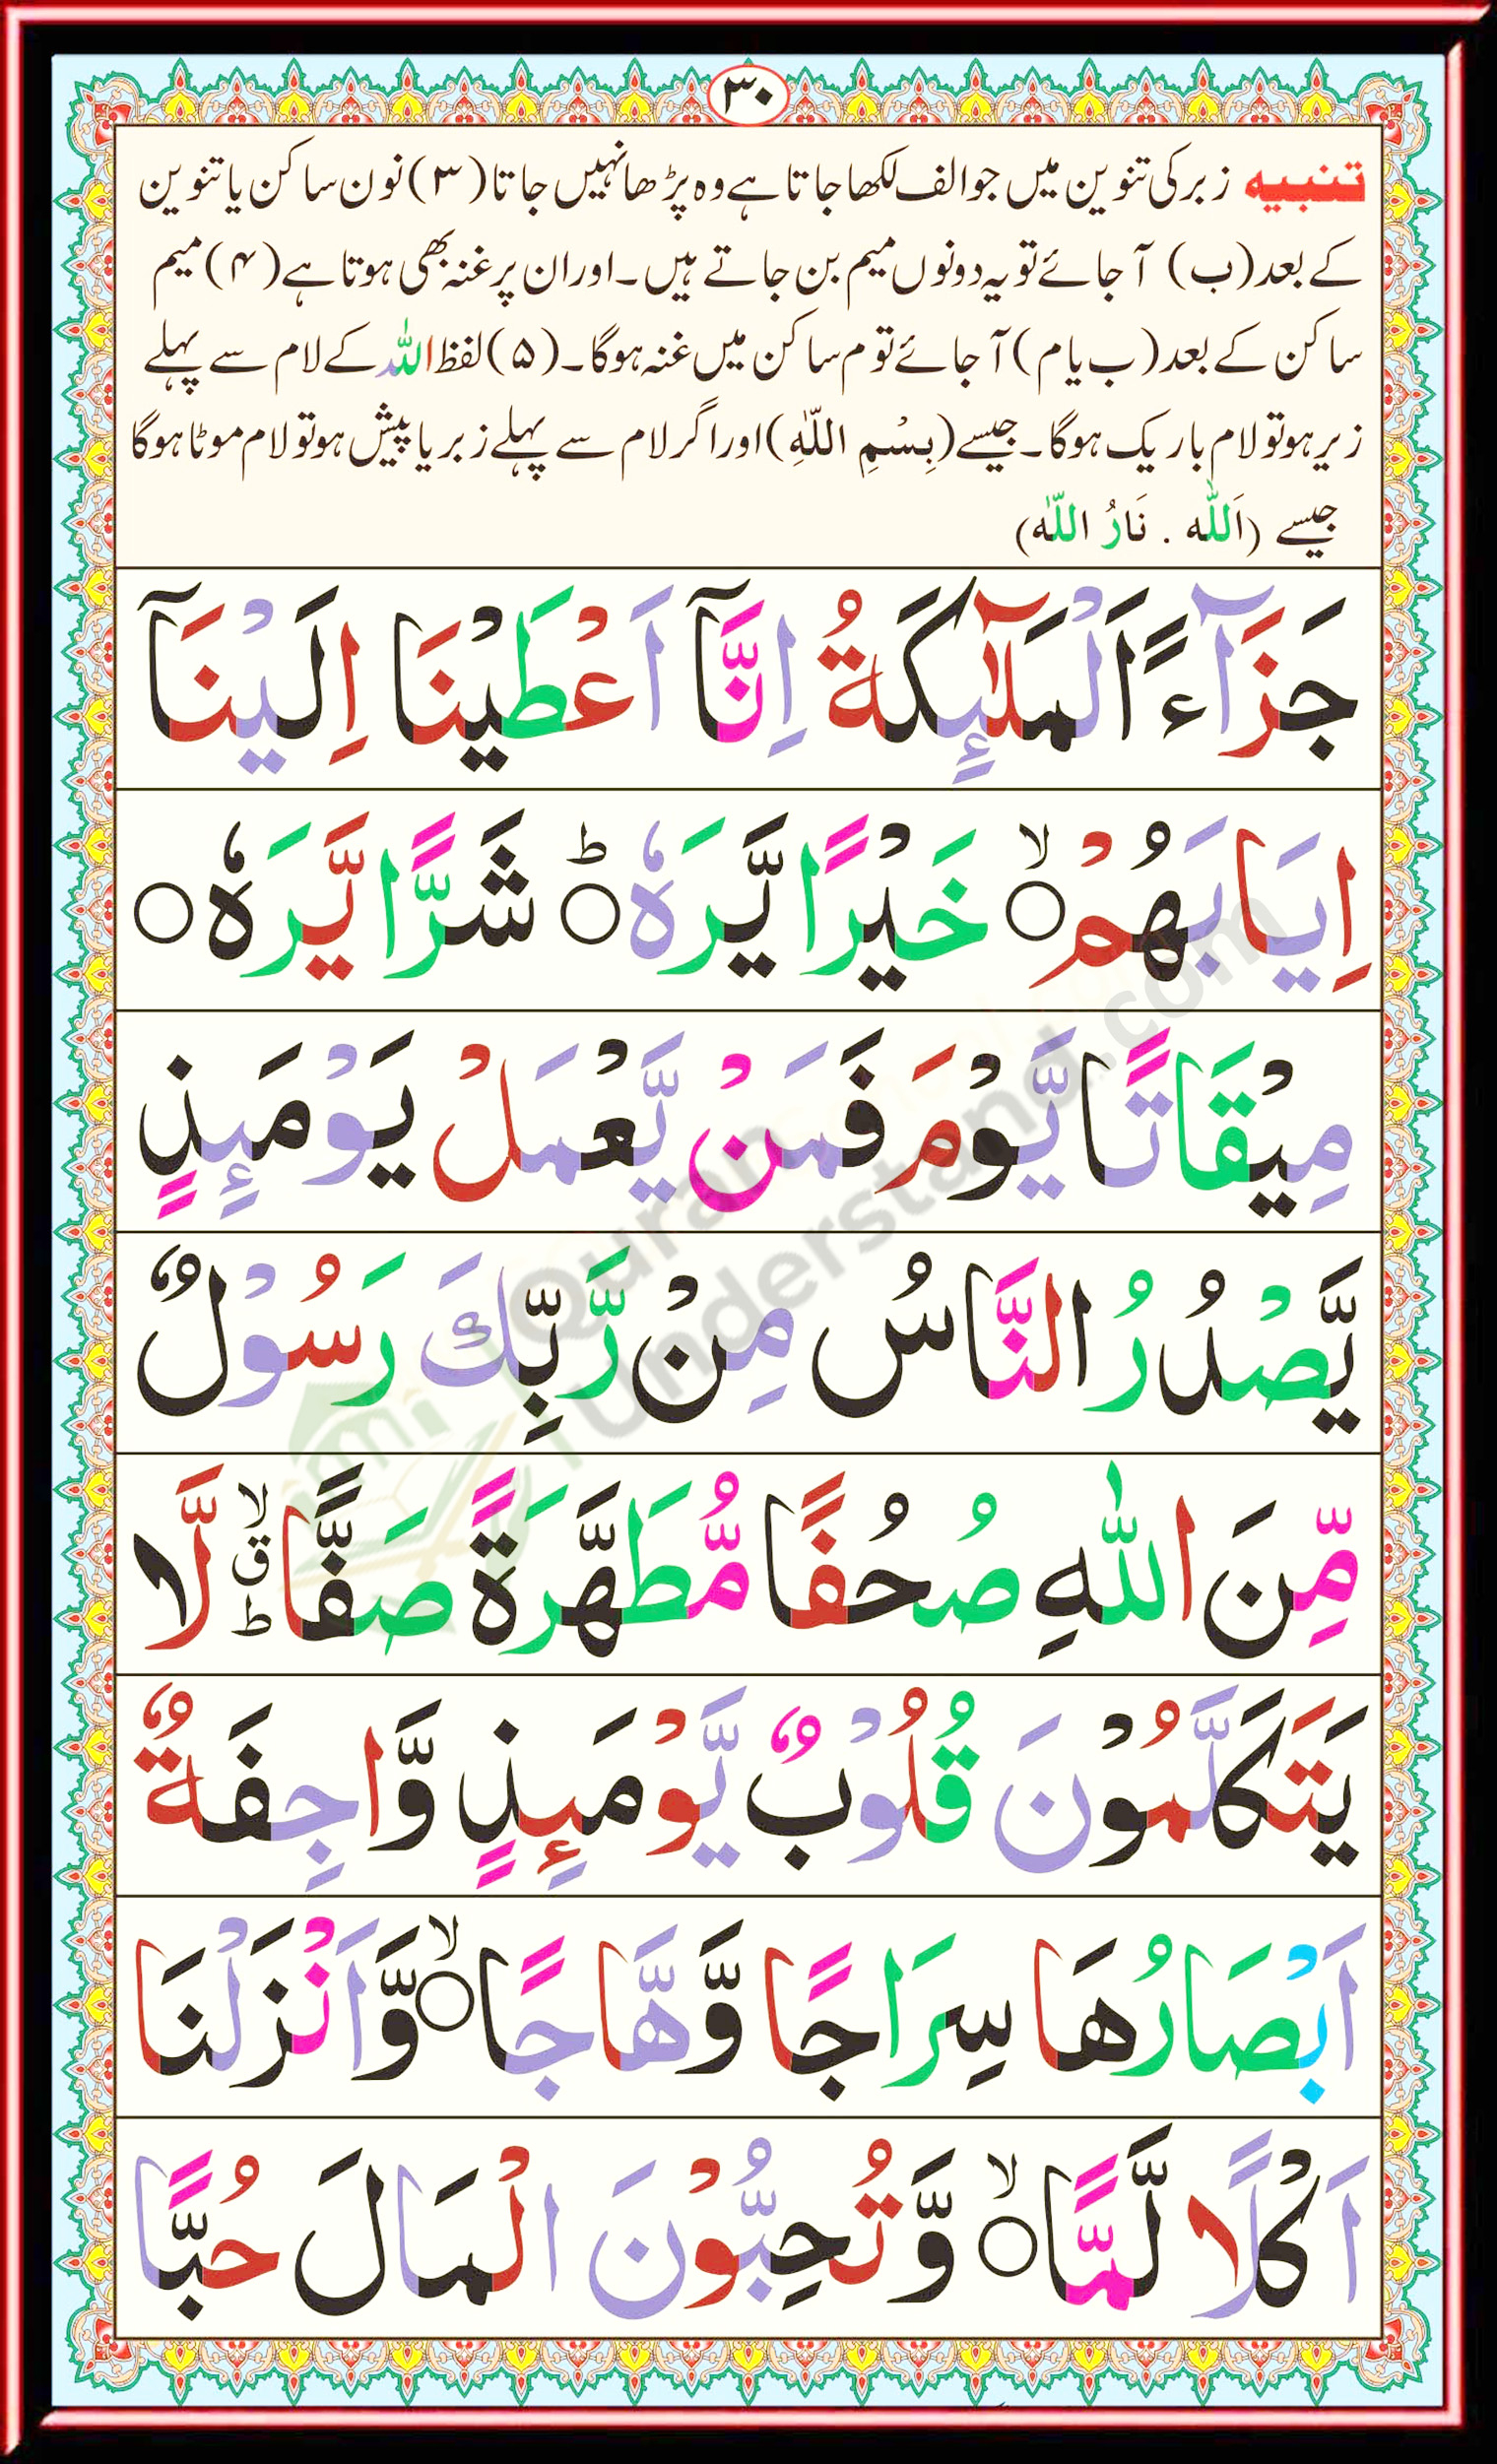 ۳۰
تنبیہ زبر کی تنوین میں جو الف لکھا جاتا ہے وہ پڑھا نہیں جاتا (۳) نون ساکن یا تنوین
کے بعد (ب) آ جائے تو یہ دونوں میم بن جاتے ہیں۔ اور ان پر غنہ بھی ہوتا ہے (۴) میم
ساکن کے بعد (ب یا م) آ جائے تو م ساکن میں غنہ ہوگا۔ (۵) لفظ اللہ کے لام سے پہلے
زیر ہو تو لام باریک ہوگا۔ جیسے (بِسْمِ اللّٰهِ) اور اگر لام سے پہلے زبر یا پیش ہو تو لام موٹا ہوگا
جیسے (اَللّٰه . نَارُ اللّٰه)
جَزَآءً اَلْمَلٰٓئِكَةُ اِنَّآ اَعْطَيْنَا اِلَيْنَآ
اِيَابَهُمْ ۙ○ خَيْرًا يَّرَهٗ ؕ○ شَرًّا يَّرَهٗ ○
مِيْقَاتًا يَّوْمَ فَمَنْ يَّعْمَلْ يَوْمَئِذٍ
يَّصْدُرُ النَّاسُ مِنْ رَّبِّكَ رَسُوْلٌ
مِّنَ اللّٰهِ صُحُفًا مُّطَهَّرَةً صَفًّا ۙق ؕ لَّا
يَتَكَلَّمُوْنَ قُلُوْبٌ يَّوْمَئِذٍ وَّاجِفَةٌ
اَبْصَارُهَا سِرَاجًا وَّهَّاجًا ۙ○ وَّاَنْزَلْنَا
اَكْلًا لَّمًّا ۙ○ وَّتُحِبُّوْنَ الْمَالَ حُبًّا
Quran
Understand.com